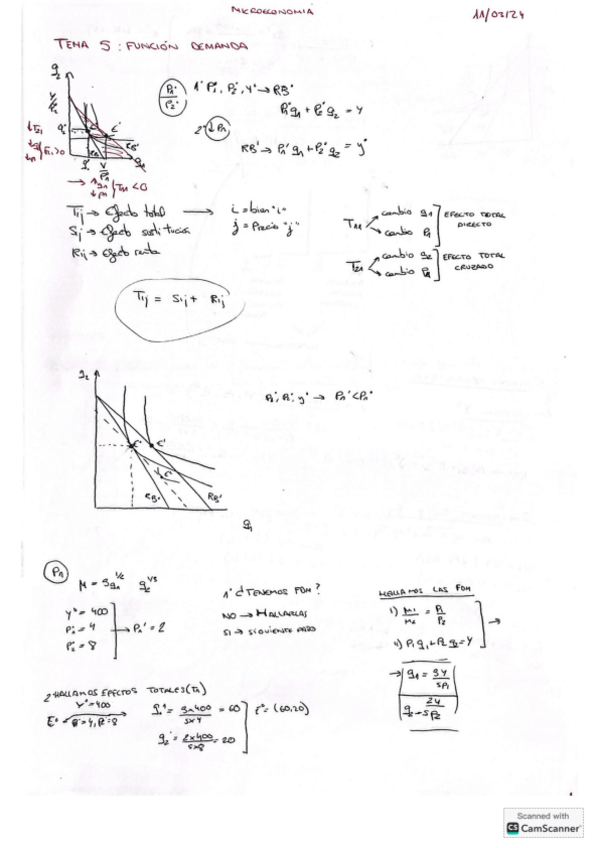 MICROECONOMÍA
11/03/24
TEMA 5: FUNCIÓN DEMANDA
q2
Y/P2
q2°
E'
RB'
q1
1° P1°, P2°, Y° → RB°
P1°q1 + P2°q2 = Y
2° ↓P1
RB' → P1'q1 + P2°q2 = y°
T11 < 0
Tij → Efecto total → i = bien "i"
Sij → Efecto sustitución j = Precio "j"
Rij → Efecto renta
T11 cambio q1 EFECTO TOTAL
cambio P1 DIRECTO
T21 cambio q2 EFECTO TOTAL
cambio P1 CRUZADO
Tij = Sij + Rij
q2
→ P1' < P1°
E° E'
RB° RB'
q1
P1
M = 5q1^1/2 q2^1/3
Y° = 400
P1° = 4 → P1' = 2
P2° = 8
1° ¿TENEMOS FDM?
NO → HALLARLAS
SI → SIGUIENTE PASO
HALLAMOS LAS FDM
1) M1/M2 = P1/P2
2) P1q1 + P2q2 = Y
→ q1 = 3Y/5P1
q2 = 2Y/5P2
2° HALLAMOS EFECTOS TOTALES (T11)
Y° = 400
E° P1° = 4, P2° = 8
q1° = 3x400/5x4 = 60
q2° = 2x400/5x8 = 20
E° = (60,20)
Scanned with
CS CamScanner